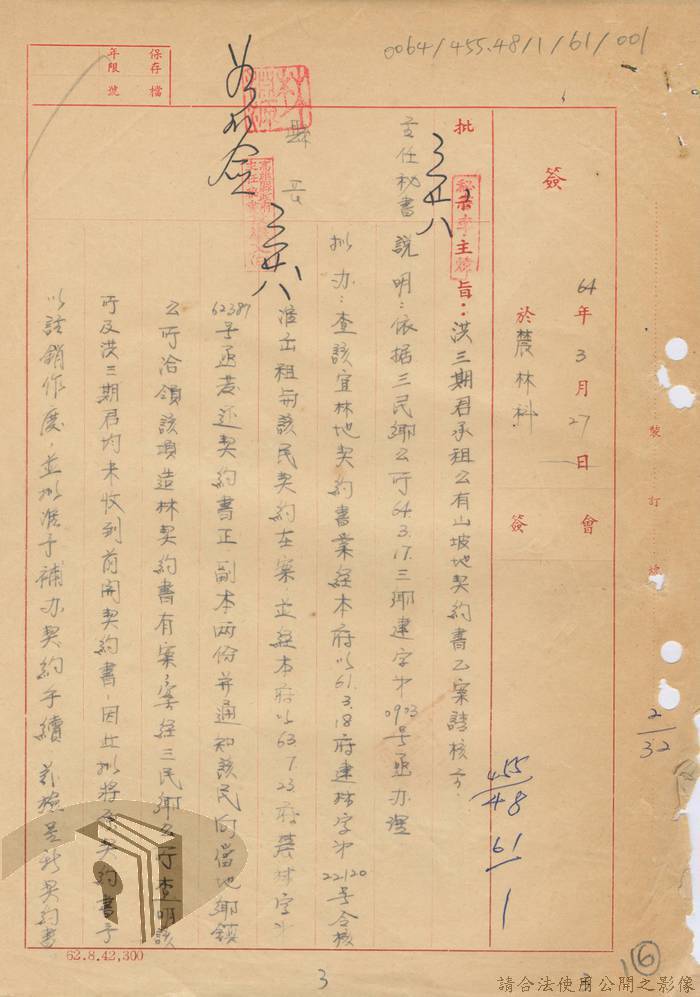 0064/455.48/1/61/001
保存 年限
檔號
簽 64年3月27日 於農林科
會簽
裝訂線
批
主任秘書
縣長
主旨：洪三期君承租公有山坡地契約書乙案請核示.
說明：依据三民鄉公所64.3.17.三鄉建字第0903号函办理
拟办：查該宜林地契約書業經本府以61.3.18府建林字第22120号令核
准出租与該民契約在案，並經本府以63.7.23.府農林字第
62387号函發还契約書正.副本兩份并通知該民向當地鄉鎮
公所洽領該項造林契約書有案，案經三民鄉公所查明該
所及洪三期君均未收到前開契約書，因此拟將原契約書予
以註銷作廢，並拟准予補办契約手續 新契約書
455/48
61/1
2/32
62.8.42,300
3
16
請合法使用公開之影像